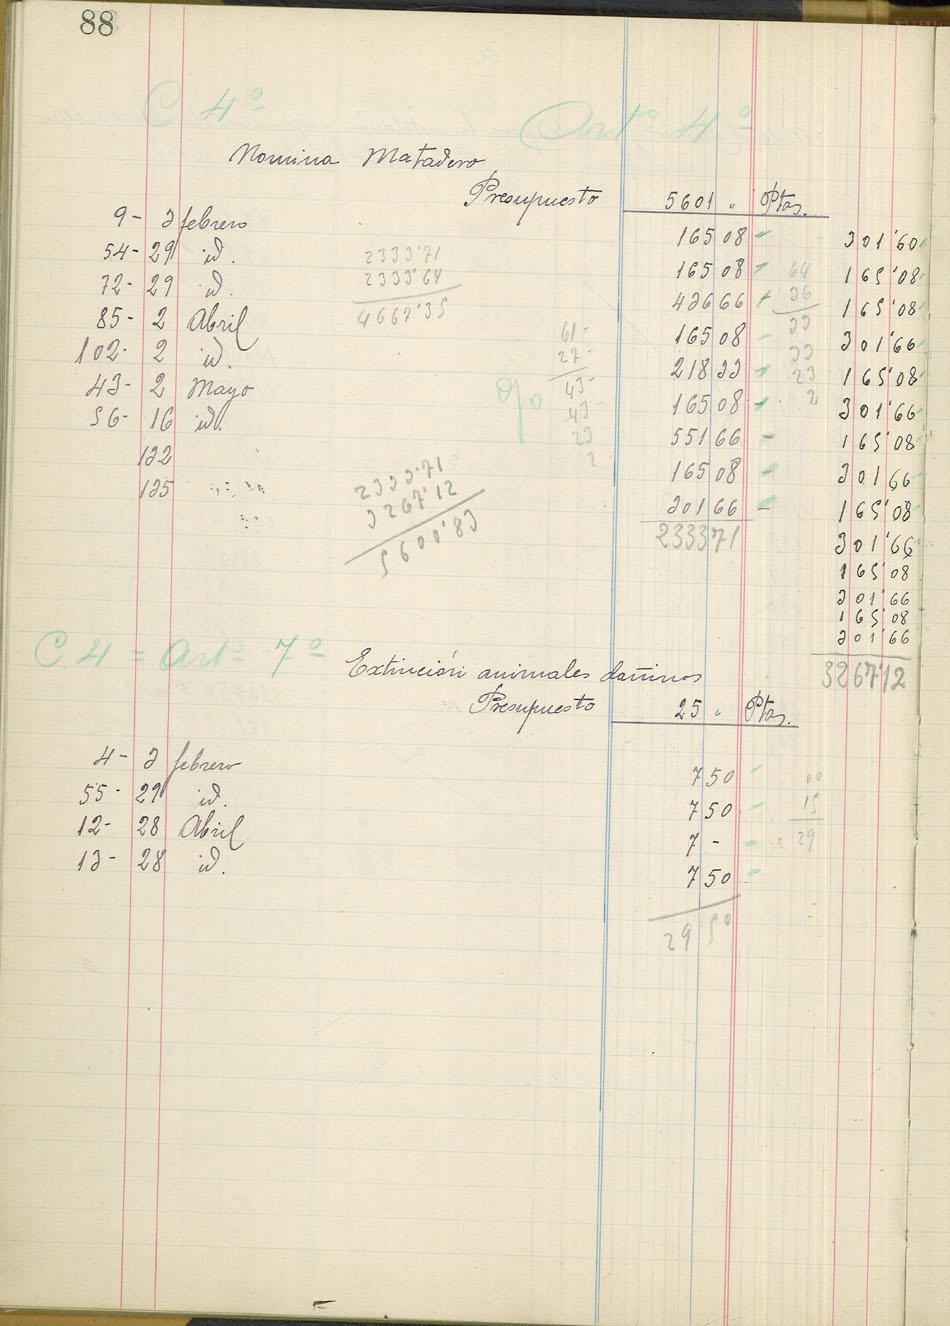 88
C 4º Artº 4º
Nomina Matadero
Presupuesto 5601 " Ptas.
9- 3 febrero 165 08 301'60
54- 29 id. 2333'71 165 08 64 165'08
72- 29 id. 2333'64 436 66 36 165'08
85- 2 Abril 4667'35 61- 165 08 33 301'66
102- 2 id. 27- 218 33 33 165'08
43- 2 Mayo 43- 165 08 23 301'66
56- 16 id. 43- 551 66 2 165'08
132 23 165 08 301'66
135 2 301 66 165'08
2333'71 2333 71 301'66
3267'12 165'08
5600'83 301'66
165'08
301'66
3267'12
C. 4 = Artº 7º
Extinción animales dañinos
Presupuesto 25 " Ptas.
4- 3 febrero 7 50
55- 29 id. 7 50 15
12- 28 Abril 7 - 29
13- 28 id. 7 50
29 50